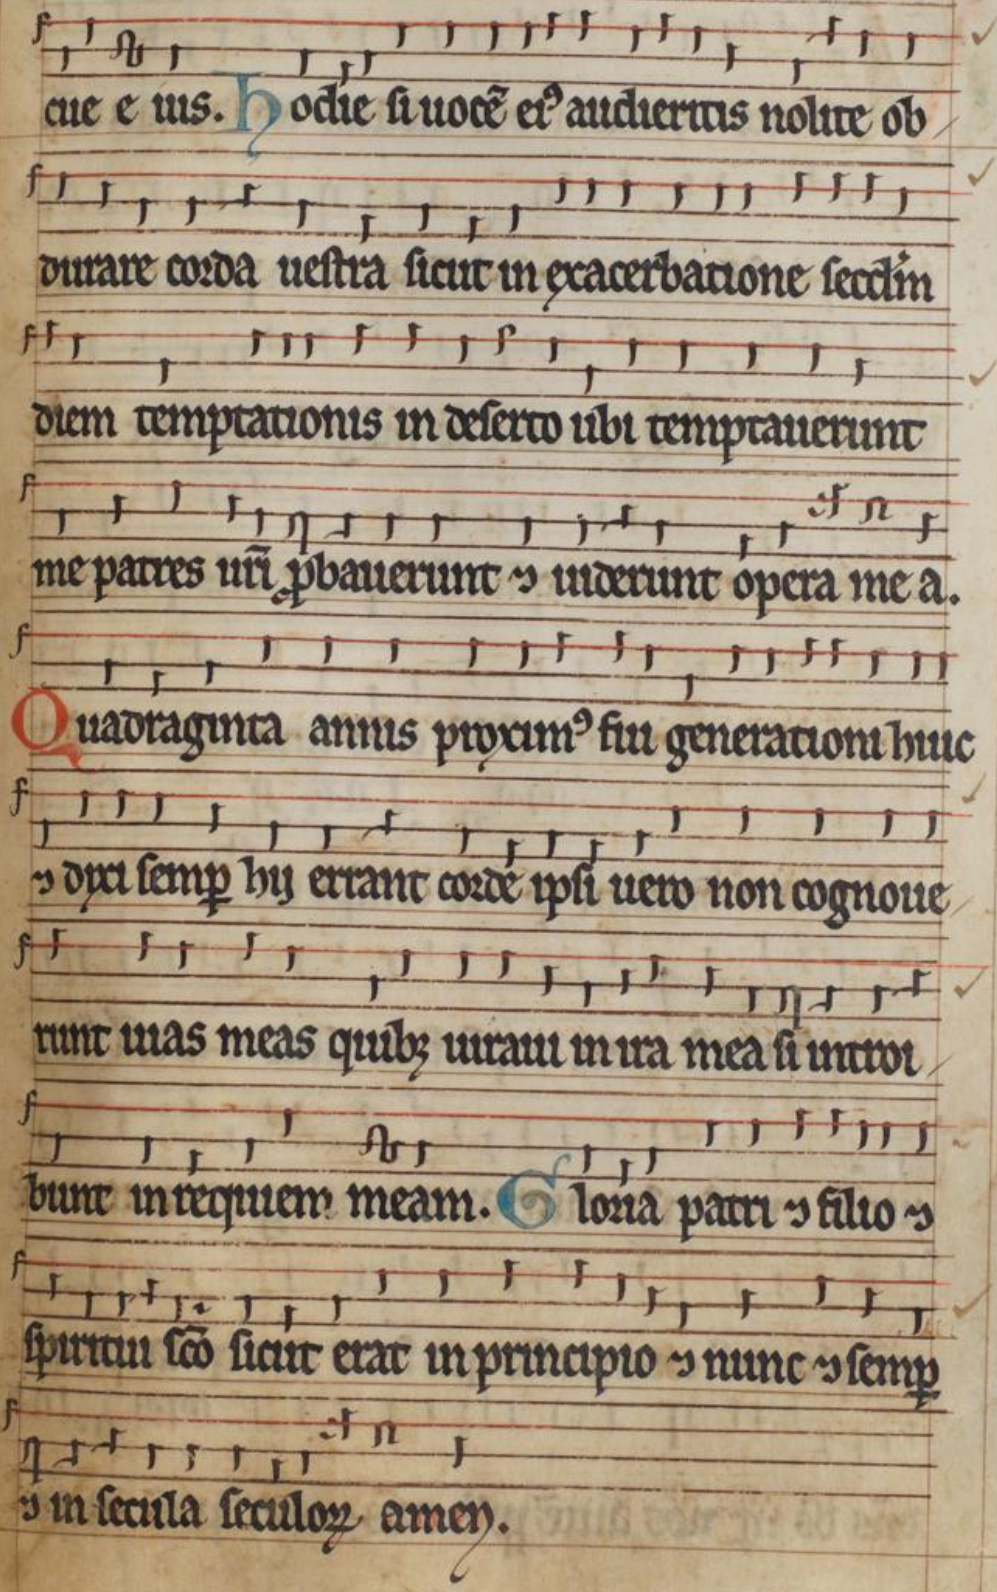 cue e ius. Hodie si uocē ei⁹ audieritis nolite ob
durare corda uestra sicut in exacerbatione secdm̄
diem temptationis in deserto ubi temptauerunt
me patres urī ꝓbauerunt ⁊ uiderunt opera me a.
Quadraginta annis proxim⁹ fui generationi huic
⁊ dixi semꝑ hij errant corde ipsi uero non cognoue
runt uias meas quibꝫ iuraui in ira mea si introi
bunt in requiem meam. Gloria patri ⁊ filio ⁊
spiritui scō sicut erat in principio ⁊ nunc ⁊ semꝑ
⁊ in secula seculoꝝ amen.